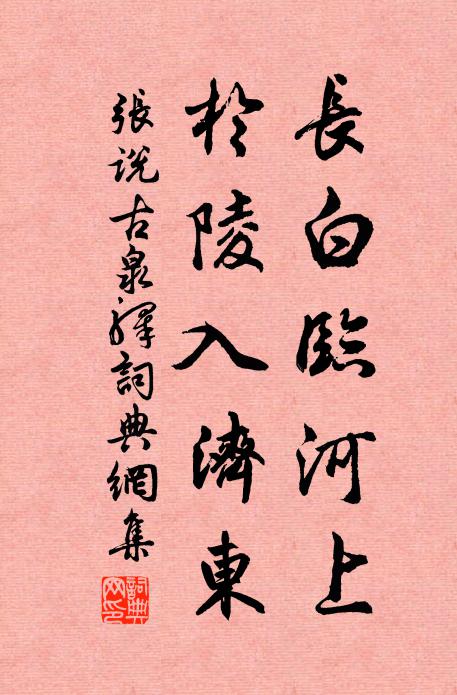 長白臨河上
於陵入濟東
張說古泉驛詞典網集
詞典網印